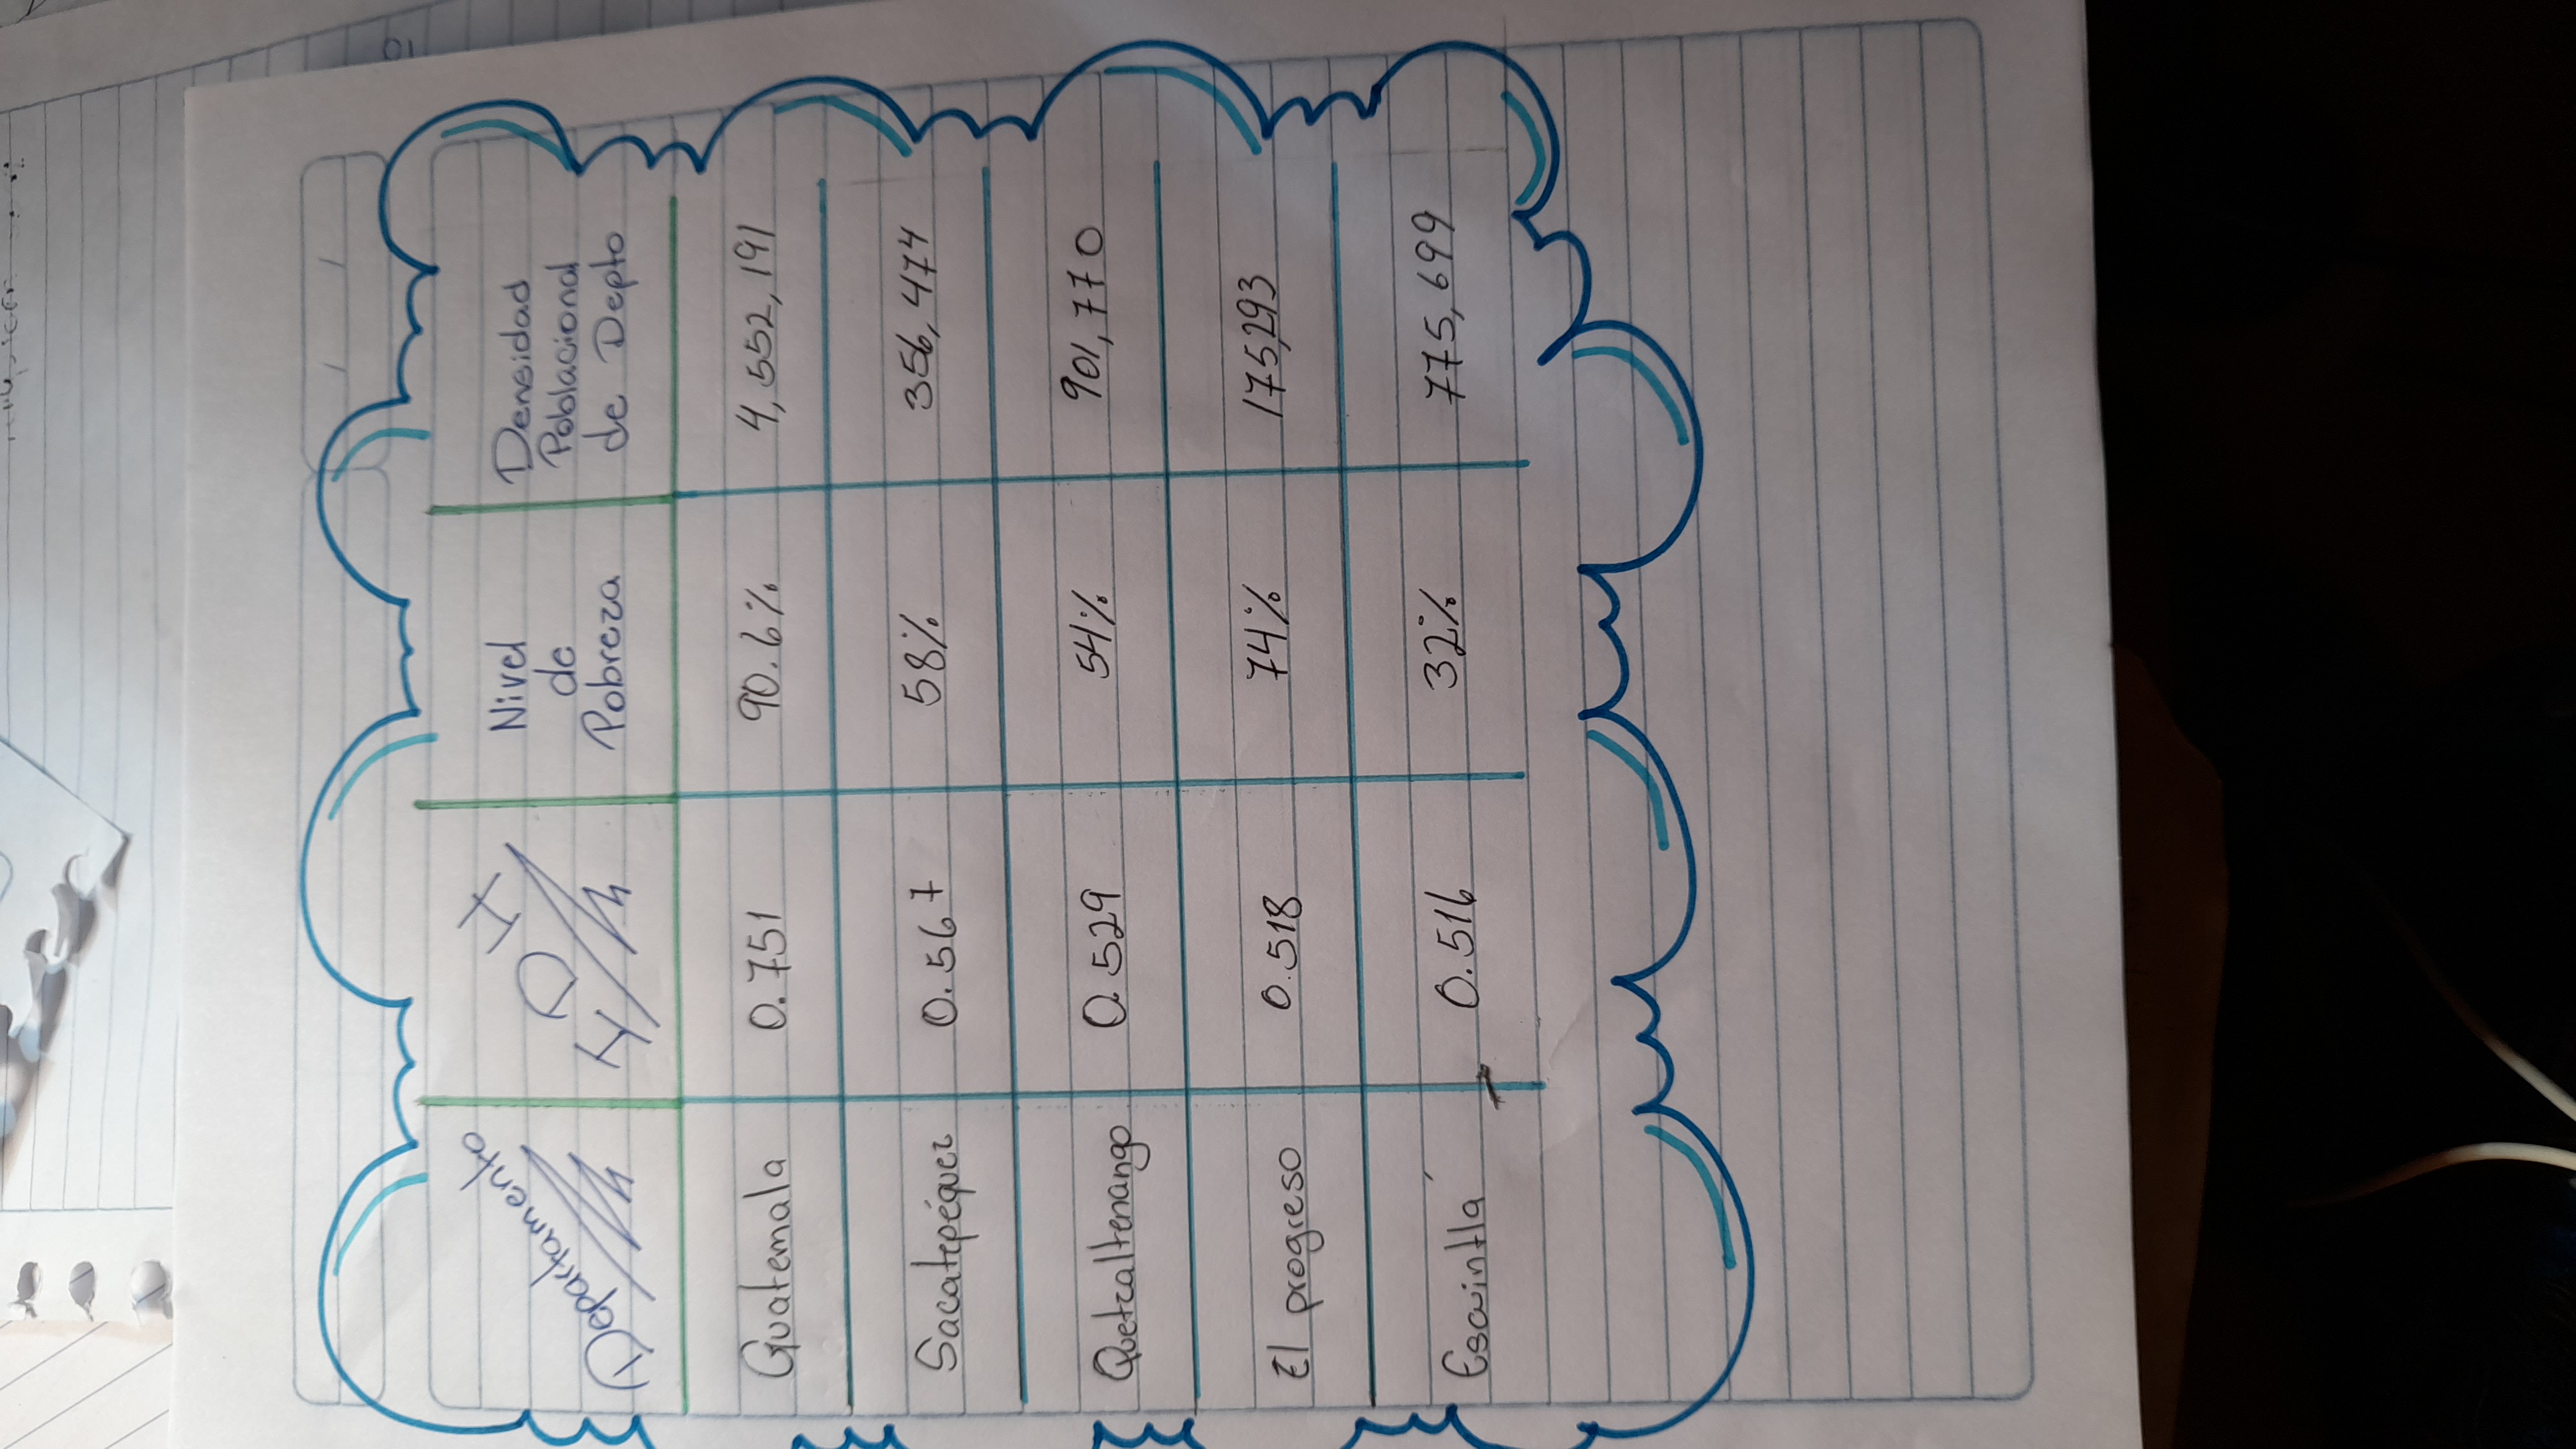 Departamento IDH Nivel de Pobreza Densidad Poblacional de Depto
Guatemala 0.751 90.6% 4,552,191
Sacatepéquez 0.567 58% 356,474
Quetzaltenango 0.529 54% 901,770
El progreso 0.518 74% 175,293
Escuintlá 0.516 32% 775,699